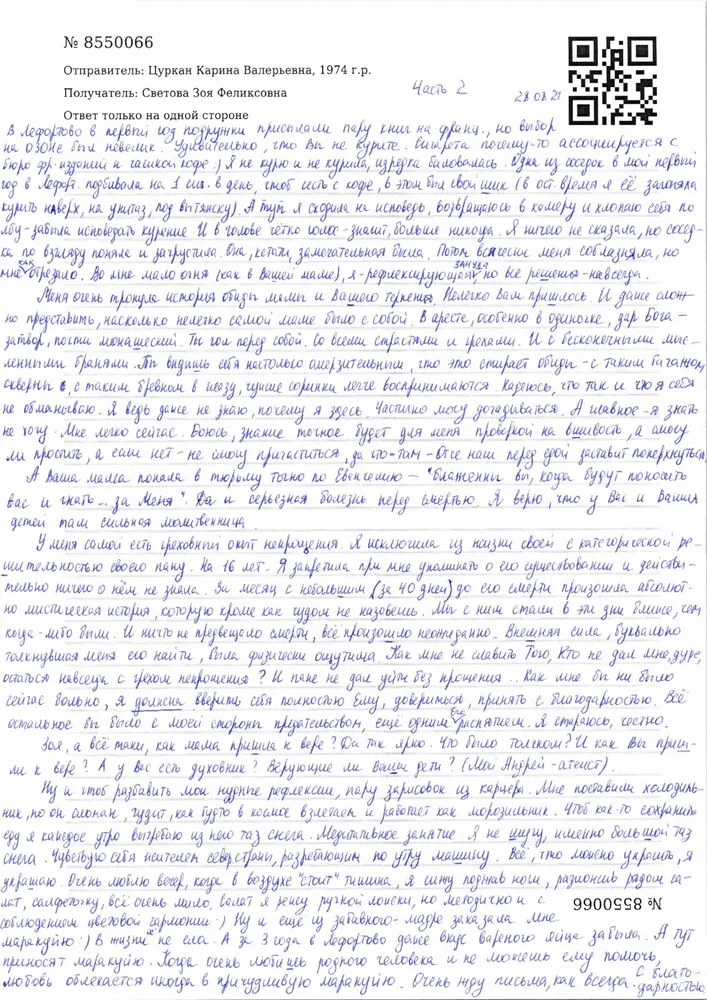 № 8550066
Отправитель: Цуркан Карина Валерьевна, 1974 г.р.
Получатель: Светова Зоя Феликсовна
Часть 2
28.08.21
Ответ только на одной стороне
В Лефортово в первый год подружки присылали пару книг на франц., но выбор
на ОЗОНе был невелик. Удивительно, что Вы не курите. Сигарета почему-то ассоциируется с
бюро фр. изданий и чашкой кофе :) Я не курю и не курила, изредка баловалась. Одна из соседок в мой первый
год в Лефорт. подбивала на 1 сиг. в день, чтоб сесть с кофе, в этом был свой шик (в ост. время я её загоняла
курить наверх, на унитаз, под вытяжку). А тут я сходила на исповедь, возвращаюсь в камеру и хлопаю себя по
лбу - забыла исповедать курение. И в голове чётко голос - значит, больше никогда. Я ничего не сказала, но сосед-
ка по взгляду поняла и загрустила. Она, кстати, замечательная была. Потом всячески меня соблазняла, но
мне как отрезало. Во мне мало огня (как в Вашей маме), я - рефлексирующая зануда, но все решения - навсегда.
Меня очень тронула история обиды мамы и Вашего терпения. Нелегко Вам пришлось. И даже слож-
но представить, насколько нелегко самой маме было с собой. В аресте, особенно в одиночке, дар Бога -
затвор, почти монашеский. Ты гол перед собой. Со всеми страстями и грехами. И с бесконечными мыс-
ленными бранями. Ты видишь себя настолько омерзительным, что это стирает обиды - с таким багажом
скверны, с таким бревном в глазу, чужие соринки легче воспринимаются. Надеюсь, что так и что я себя
не обманываю. Я ведь даже не знаю, почему я здесь. Частично могу догадываться. А главное - я знать
не хочу. Мне легко сейчас. Боюсь, знание точное будет для меня проверкой на вшивость, а смогу
ли простить, а если нет - не смогу причаститься, да что там - Отче наш перед едой заставит поперхнуться.
А Ваша мама попала в тюрьму точно по Евангелию - "Блаженны вы, когда будут поносить
вас и гнать... за Меня". Да и серьезная болезнь перед смертью. Я верю, что у Вас и Ваших
детей там сильная молитвенница.
У меня самой есть греховный опыт непрощения. Я исключила из жизни своей с категорической ре-
шительностью своего папу. На 16 лет. Я запретила при мне упоминать о его существовании и действи-
тельно ничего о нём не знала. За месяц с небольшим (за 40 дней) до его смерти произошла абсолют-
но мистическая история, которую кроме как чудом не назовешь. Мы с ним стали в эти дни ближе, чем
когда-либо были. И ничто не предвещало смерти, всё произошло неожиданно. Внешняя сила, буквально
толкнувшая меня его найти, была физически ощутима. Как мне не славить Того, Кто не дал мне, дуре,
остаться навсегда с грехом непрощения? И папе не дал уйти без прощения... Как мне бы ни было
сейчас больно, я должна вверить себя полностью Ему, довериться, принять с благодарностью. Всё
остальное бы было с моей стороны предательством, ещё одним Его распятием. Я стараюсь, честно.
Зоя, а всё таки, как мама пришла к вере? Да так ярко. Что было толчком? И как Вы приш-
ли к вере? А у Вас есть духовник? Верующие ли Ваши дети? (Мой Андрей - атеист).
Ну и чтоб разбавить мои нудные рефлексии, пару зарисовок из карцера. Мне поставили холодиль-
ник, но он сломан, гудит, как будто в космос взлетаем и работает как морозильник. Чтоб как-то сохранить
еду я каждое утро выгребаю из него таз снега. Медитативное занятие. Я не шучу, именно большой таз
снега. Чувствую себя жителем сев. страны, разгребающим по утру машину. Всё, что можно украсить, я
украшаю. Очень люблю вечер, когда в воздухе "стоит" тишина, я сижу поджав ноги, разложив рядом са-
лат, салфетки, всё очень мило. Салат я режу ручкой ложки, но методично и с
соблюдением цветовой гармонии :) Ну и ещё из забавного - мадре заказала мне
маракуйю :) В жизни не ела. А за 3 года в Лефортово даже вкус вареного яйца забыла. А тут
приносят маракуйю. Когда очень любишь родного человека и не можешь ему помочь,
любовь облекается иногда в причудливую маракуйю. Очень жду письма, как всегда. С благо-
дарностью
№ 8550066